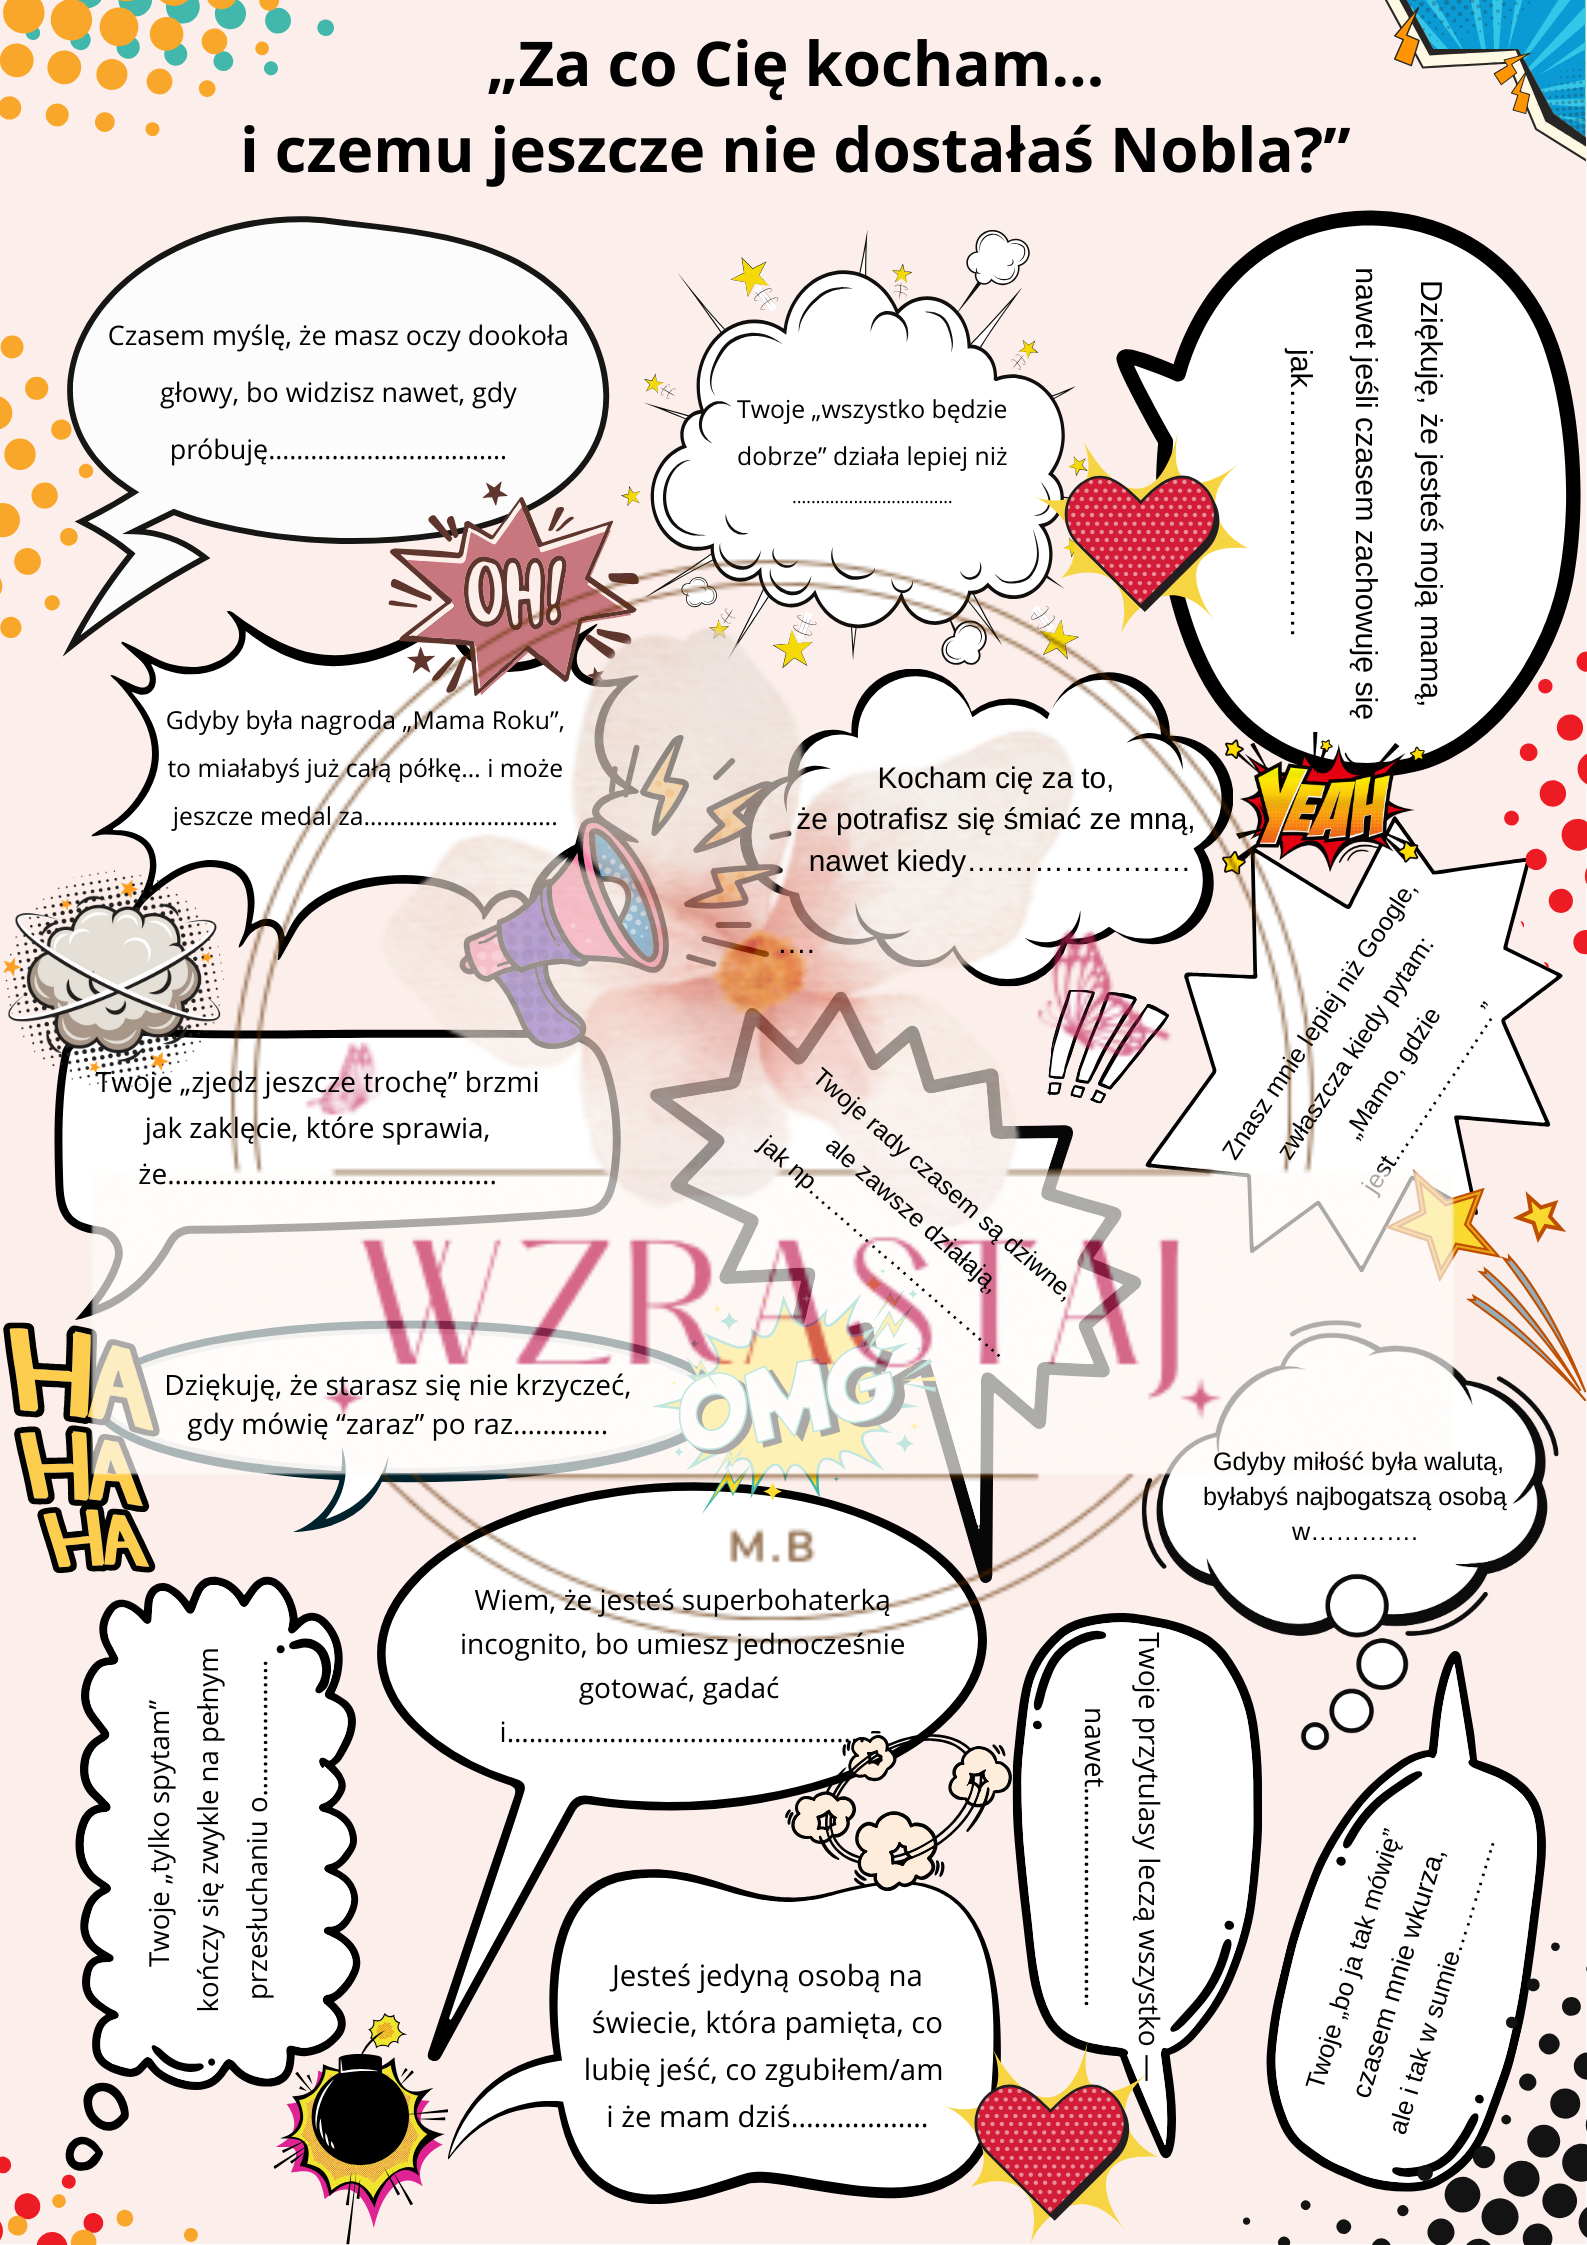 „Za co Cię kocham...
i czemu jeszcze nie dostałaś Nobla?”
Czasem myślę, że masz oczy dookoła
głowy, bo widzisz nawet, gdy
próbuję..................................
Twoje „wszystko będzie
dobrze” działa lepiej niż
..................................
Dziękuję, że jesteś moją mamą,
nawet jeśli czasem zachowuję się
jak……………………….
OH!
Gdyby była nagroda „Mama Roku”,
to miałabyś już całą półkę… i może
jeszcze medal za..............................
Kocham cię za to,
że potrafisz się śmiać ze mną,
nawet kiedy……………………
….
YEAH
Znasz mnie lepiej niż Google,
zwłaszcza kiedy pytam:
„Mamo, gdzie
jest…………………”
Twoje „zjedz jeszcze trochę” brzmi
jak zaklęcie, które sprawia,
że.............................................
Twoje rady czasem są dziwne,
ale zawsze działają,
jak np…………………………
WZRASTAJ
M.B
HA
HA
HA
Dziękuję, że starasz się nie krzyczeć,
gdy mówię “zaraz” po raz.............
OMG
Gdyby miłość była walutą,
byłabyś najbogatszą osobą
w………….
Wiem, że jesteś superbohaterką
incognito, bo umiesz jednocześnie
gotować, gadać
i................................................
Twoje „tylko spytam”
kończy się zwykle na pełnym
przesłuchaniu o...................
Twoje przytulasy leczą wszystko —
nawet..............................
Twoje „bo ja tak mówię”
czasem mnie wkurza,
ale i tak w sumie……………
Jesteś jedyną osobą na
świecie, która pamięta, co
lubię jeść, co zgubiłem/am
i że mam dziś..................